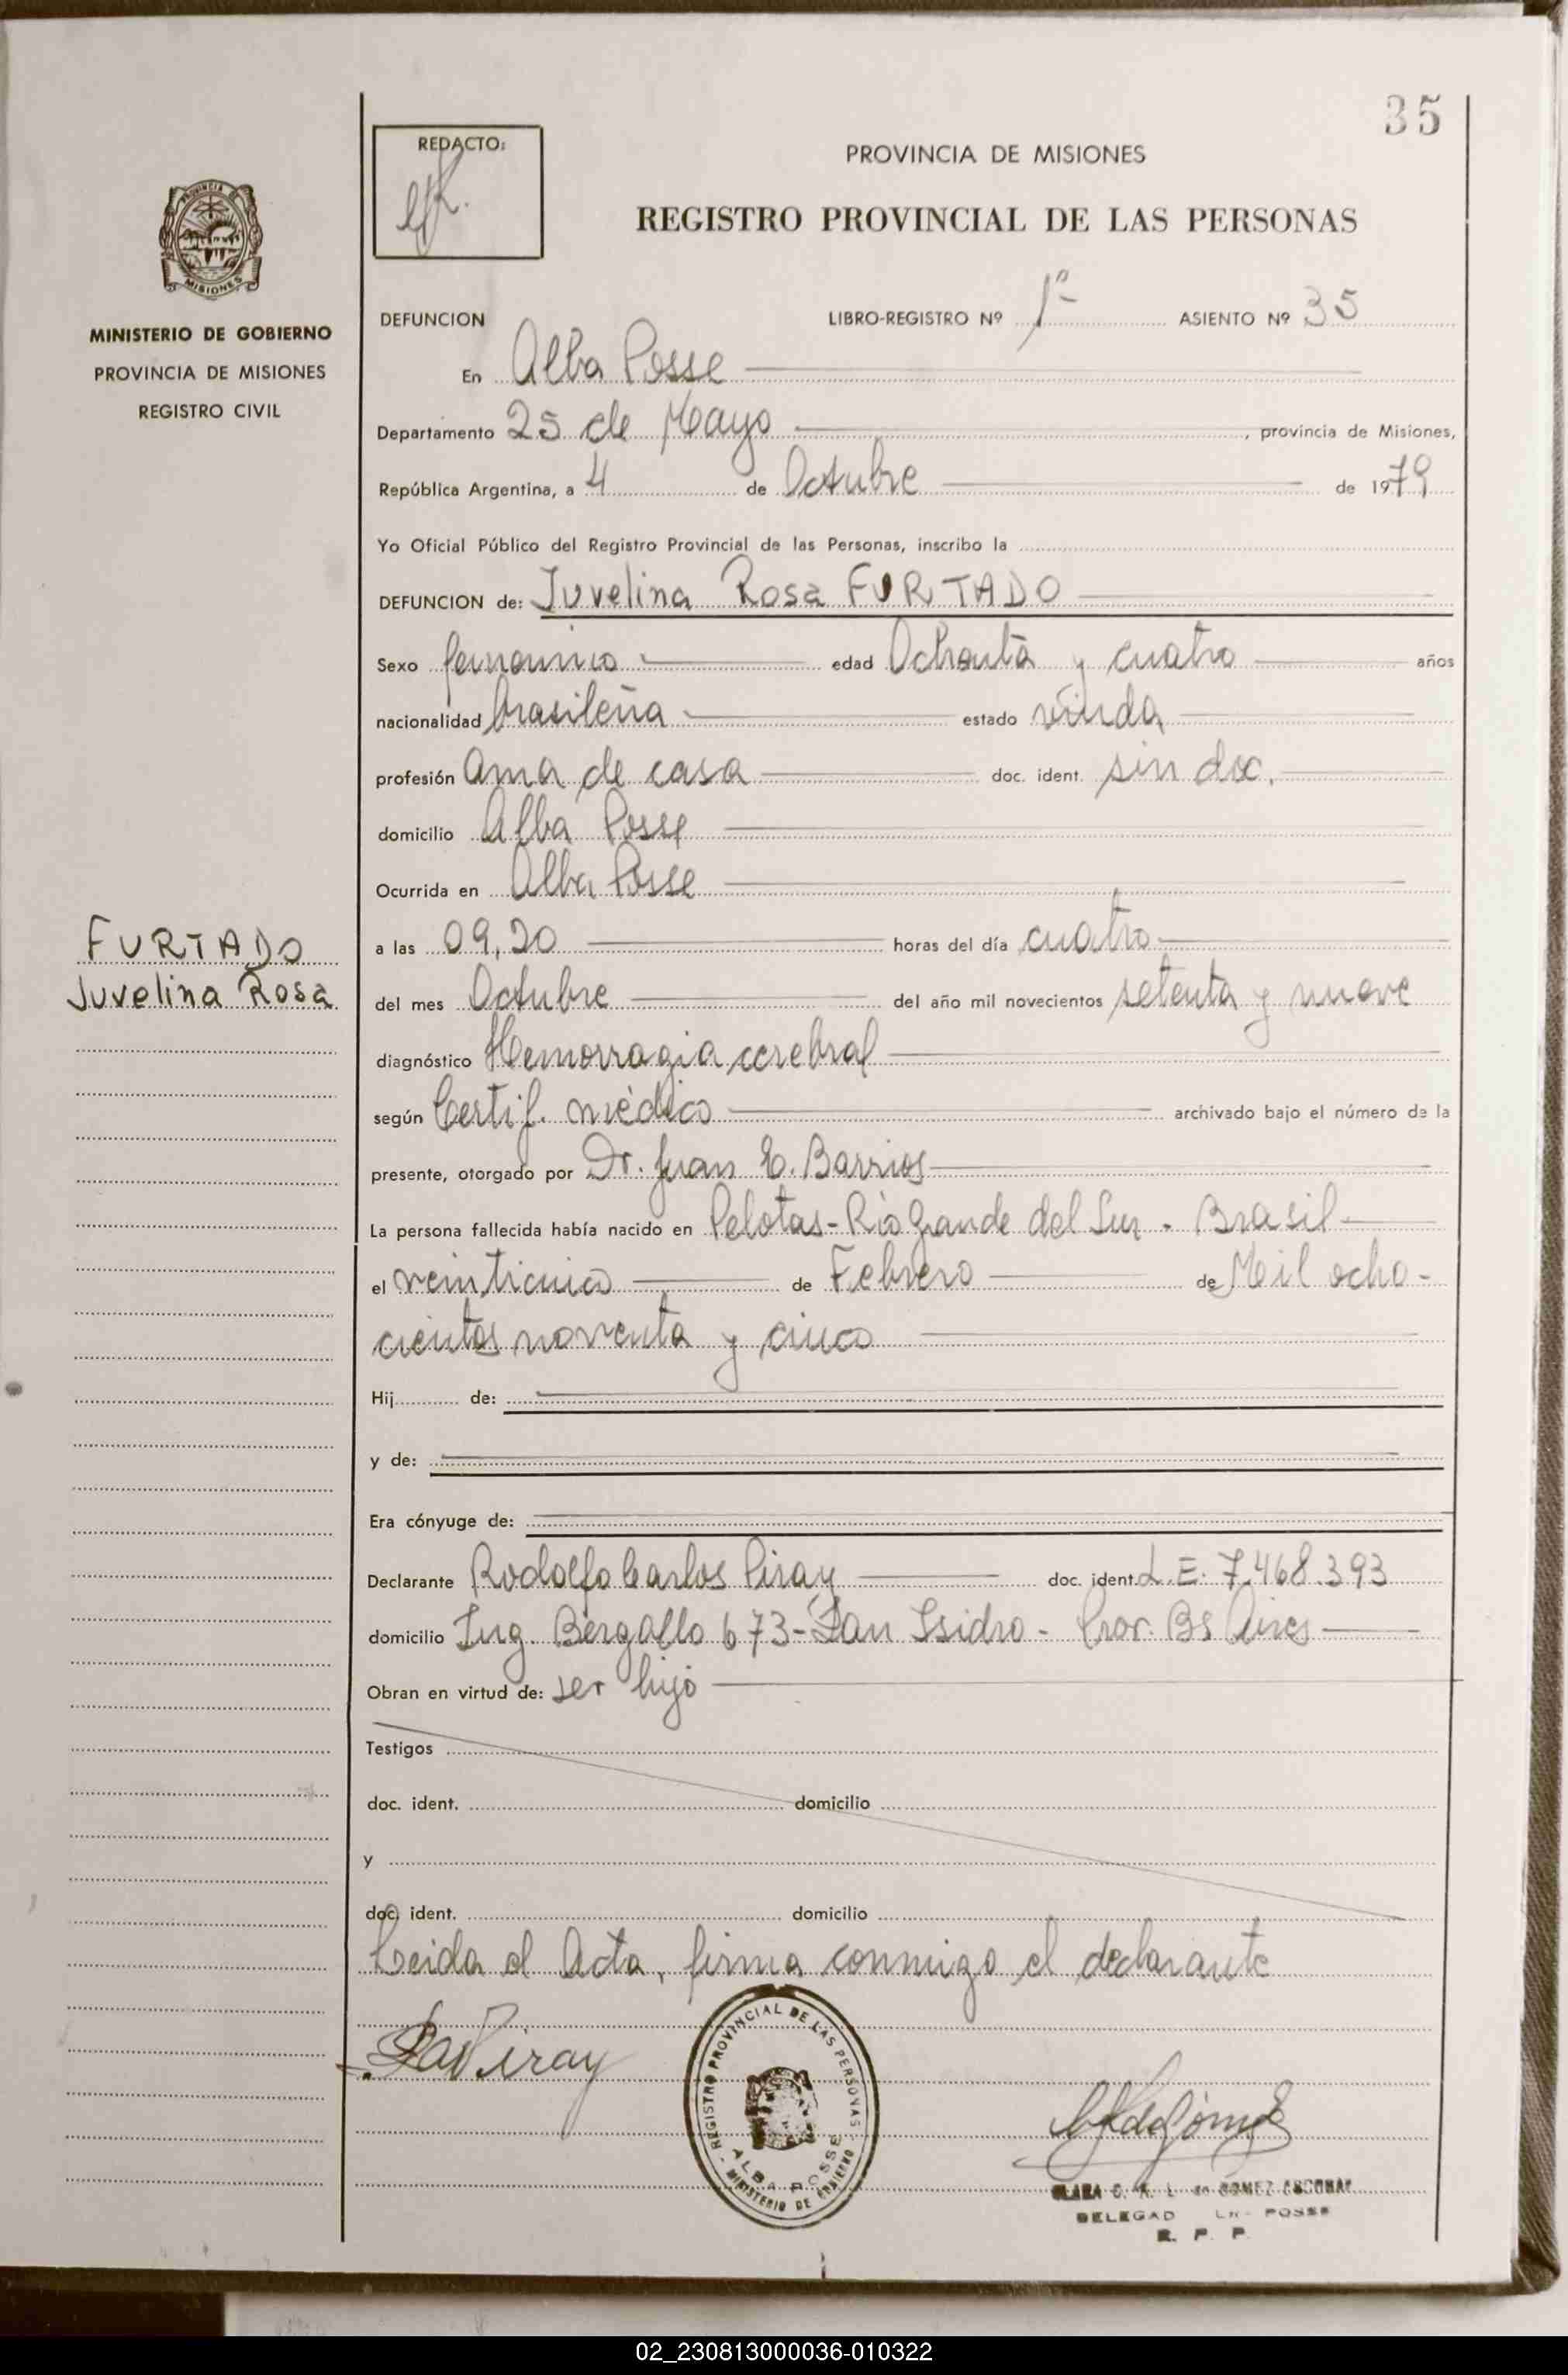 35
REDACTO:
PROVINCIA DE MISIONES
REGISTRO PROVINCIAL DE LAS PERSONAS
PROVINCIA DE
MISIONES
MINISTERIO DE GOBIERNO
PROVINCIA DE MISIONES
REGISTRO CIVIL
DEFUNCION LIBRO-REGISTRO Nº 1º ASIENTO Nº 35
En Alba Posse
Departamento 25 de Mayo, provincia de Misiones,
República Argentina, a 4 de Octubre de 1979
Yo Oficial Público del Registro Provincial de las Personas, inscribo la
DEFUNCION de: Juvelina Rosa FURTADO
Sexo femenino edad Ochenta y cuatro años
nacionalidad brasileña estado viuda
profesión ama de casa doc. ident. sin doc.
domicilio Alba Posse
Ocurrida en Alba Posse
FURTADO
Juvelina Rosa
a las 09,20 horas del día cuatro
del mes Octubre del año mil novecientos setenta y nueve
diagnóstico Hemorragia cerebral
según Certif. médico archivado bajo el número de la
presente, otorgado por Dr. Juan E. Barrios
La persona fallecida había nacido en Pelotas-Río Grande del Sur - Brasil
el veinticinco de Febrero de Mil ocho-
cientos noventa y cinco
Hij de:
y de:
Era cónyuge de:
Declarante Rodolfo Carlos Piray doc. ident. L.E. 7.468.393
domicilio Ing. Bergallo 673-San Isidro - Prov. Bs Aires
Obran en virtud de: ser hijo
Testigos
doc. ident. domicilio
y
doc. ident. domicilio
Leida el Acta, firma conmigo el declarante
REGISTRO PROVINCIAL DE LAS PERSONAS
ALBA POSSE
MINISTERIO DE GOBIERNO
CLARA de GOMEZ
DELEGAD POSSE
R. P. P.
02_230813000036-010322